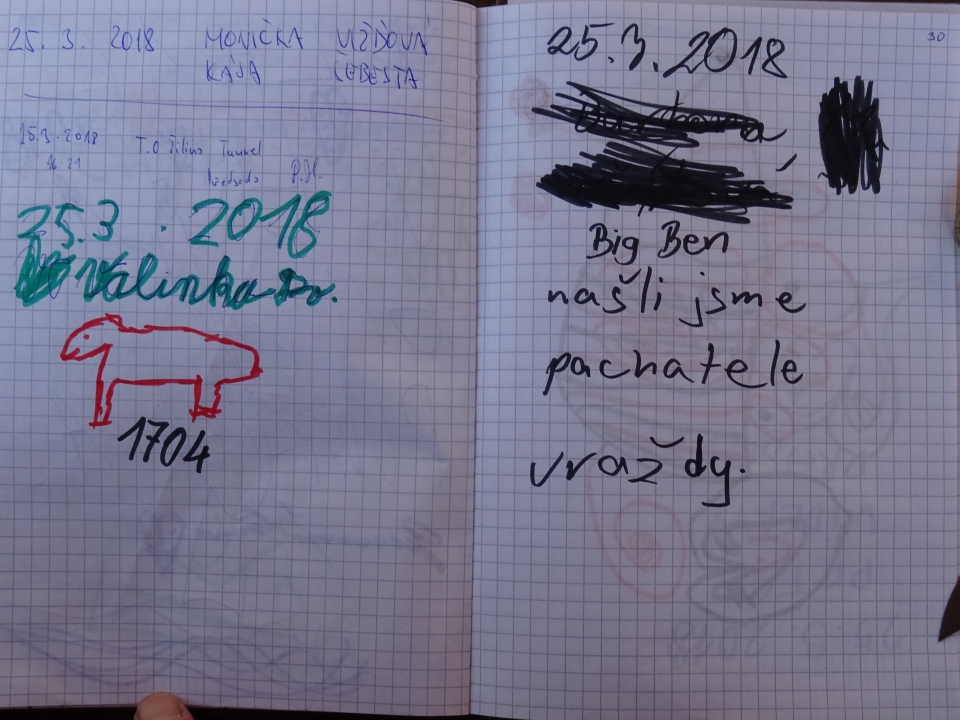 25. 3. 2018 MONIČKA VIŽĎOVÁ
KÁJA ŠEBESTA
25.3.2018 T.O. Žilina Tunnel
16.21
25.3.2018
Valinka
1704
30
25.3.2018
Big Ben
našli jsme
pachatele
vraždy.